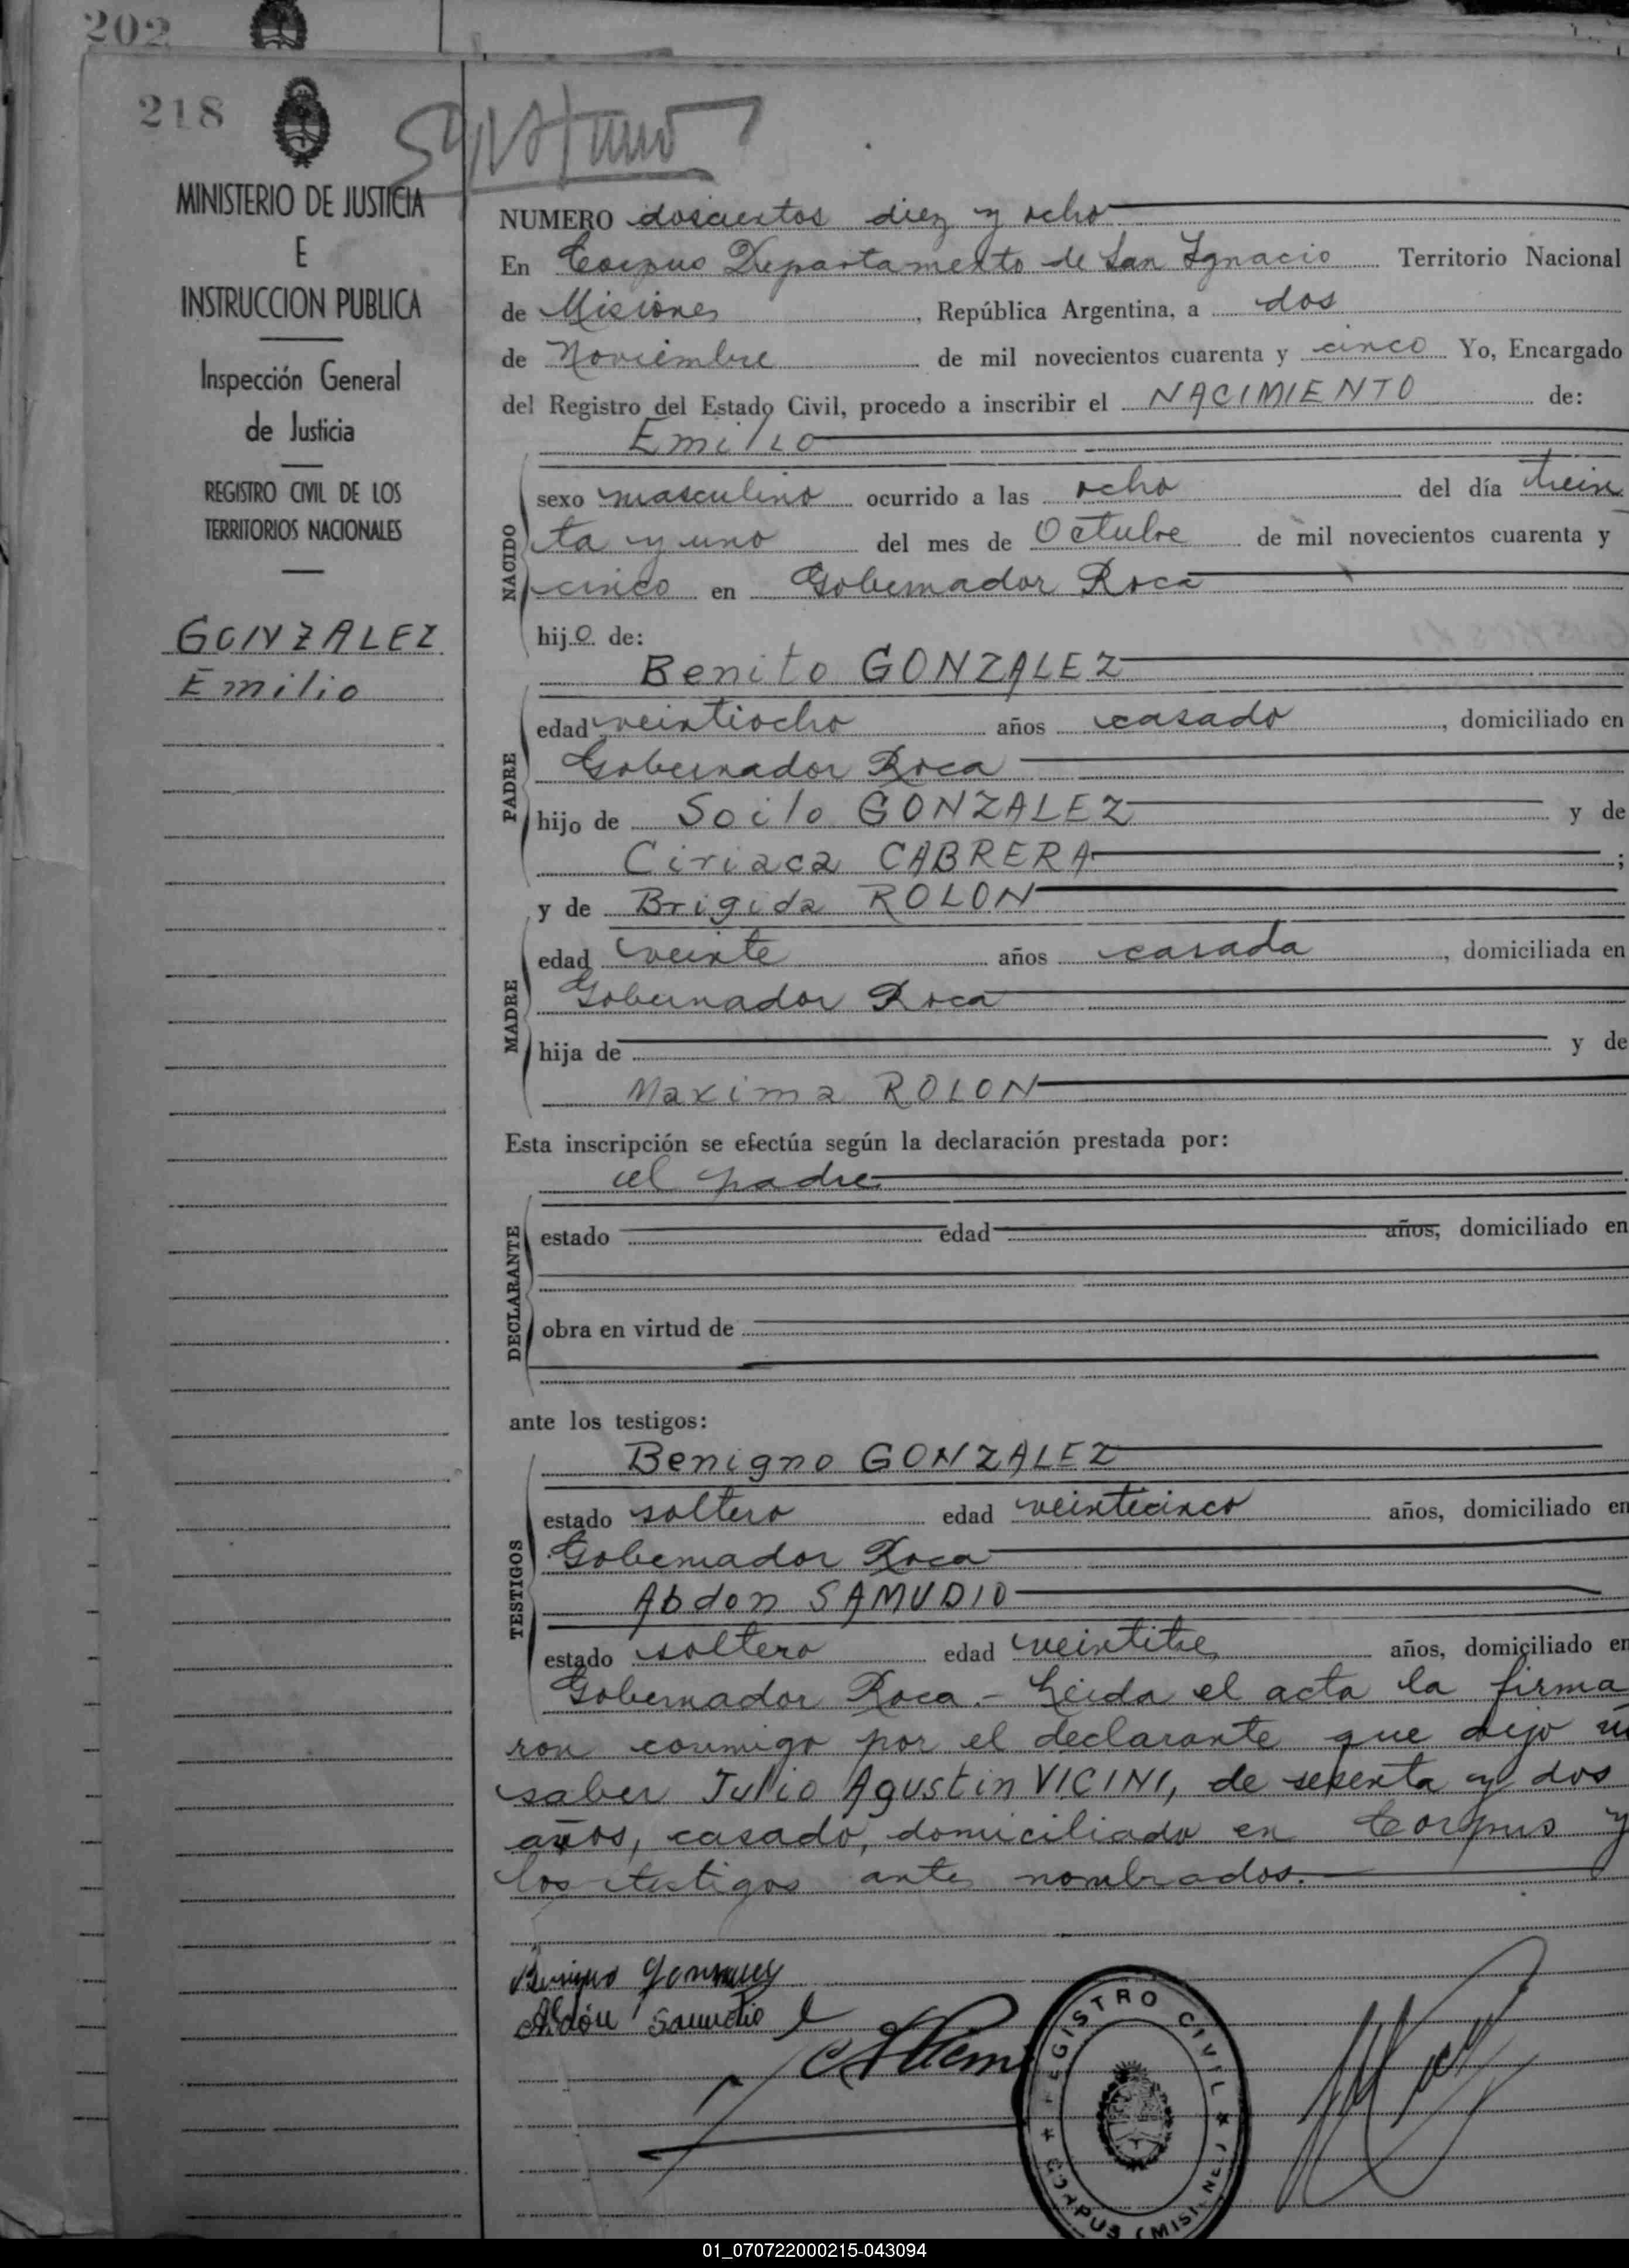 202
218
MINISTERIO DE JUSTICIA
E
INSTRUCCION PUBLICA
Inspección General
de Justicia
REGISTRO CIVIL DE LOS
TERRITORIOS NACIONALES
GONZALEZ
Emilio
NUMERO doscientos diez y ocho
En Corpus Departamento de San Ignacio Territorio Nacional
de Misiones, República Argentina, a dos
de Noviembre de mil novecientos cuarenta y cinco Yo, Encargado
del Registro del Estado Civil, procedo a inscribir el NACIMIENTO de:
Emilio
NACIDO
sexo masculino ocurrido a las ocho del día trein
ta y uno del mes de Octubre de mil novecientos cuarenta y
cinco en Gobernador Roca
hijo de:
Benito GONZALEZ
PADRE
edad veintiocho años casado, domiciliado en
Gobernador Roca
hijo de Soilo GONZALEZ y de
Ciriaca CABRERA;
y de Brigida ROLON
MADRE
edad veinte años casada, domiciliada en
Gobernador Roca
hija de y de
Maxima ROLON
Esta inscripción se efectúa según la declaración prestada por:
el padre
DECLARANTE
estado edad años, domiciliado en
obra en virtud de
ante los testigos:
Benigno GONZALEZ
TESTIGOS
estado soltero edad veinticinco años, domiciliado en
Gobernador Roca
Abdon SAMUDIO
estado soltero edad veintitres años, domiciliado en
Gobernador Roca.- Leida el acta la firma
ron conmigo por el declarante que dijo
saber Julio Agustin VICINI, de sesenta y dos
años, casado, domiciliado en Corpus y
los testigos antes nombrados.
Benigno Gonzalez
Abdón Samudio
REGISTRO CIVIL
CORPUS (MISIONES)
01_070722000215-043094